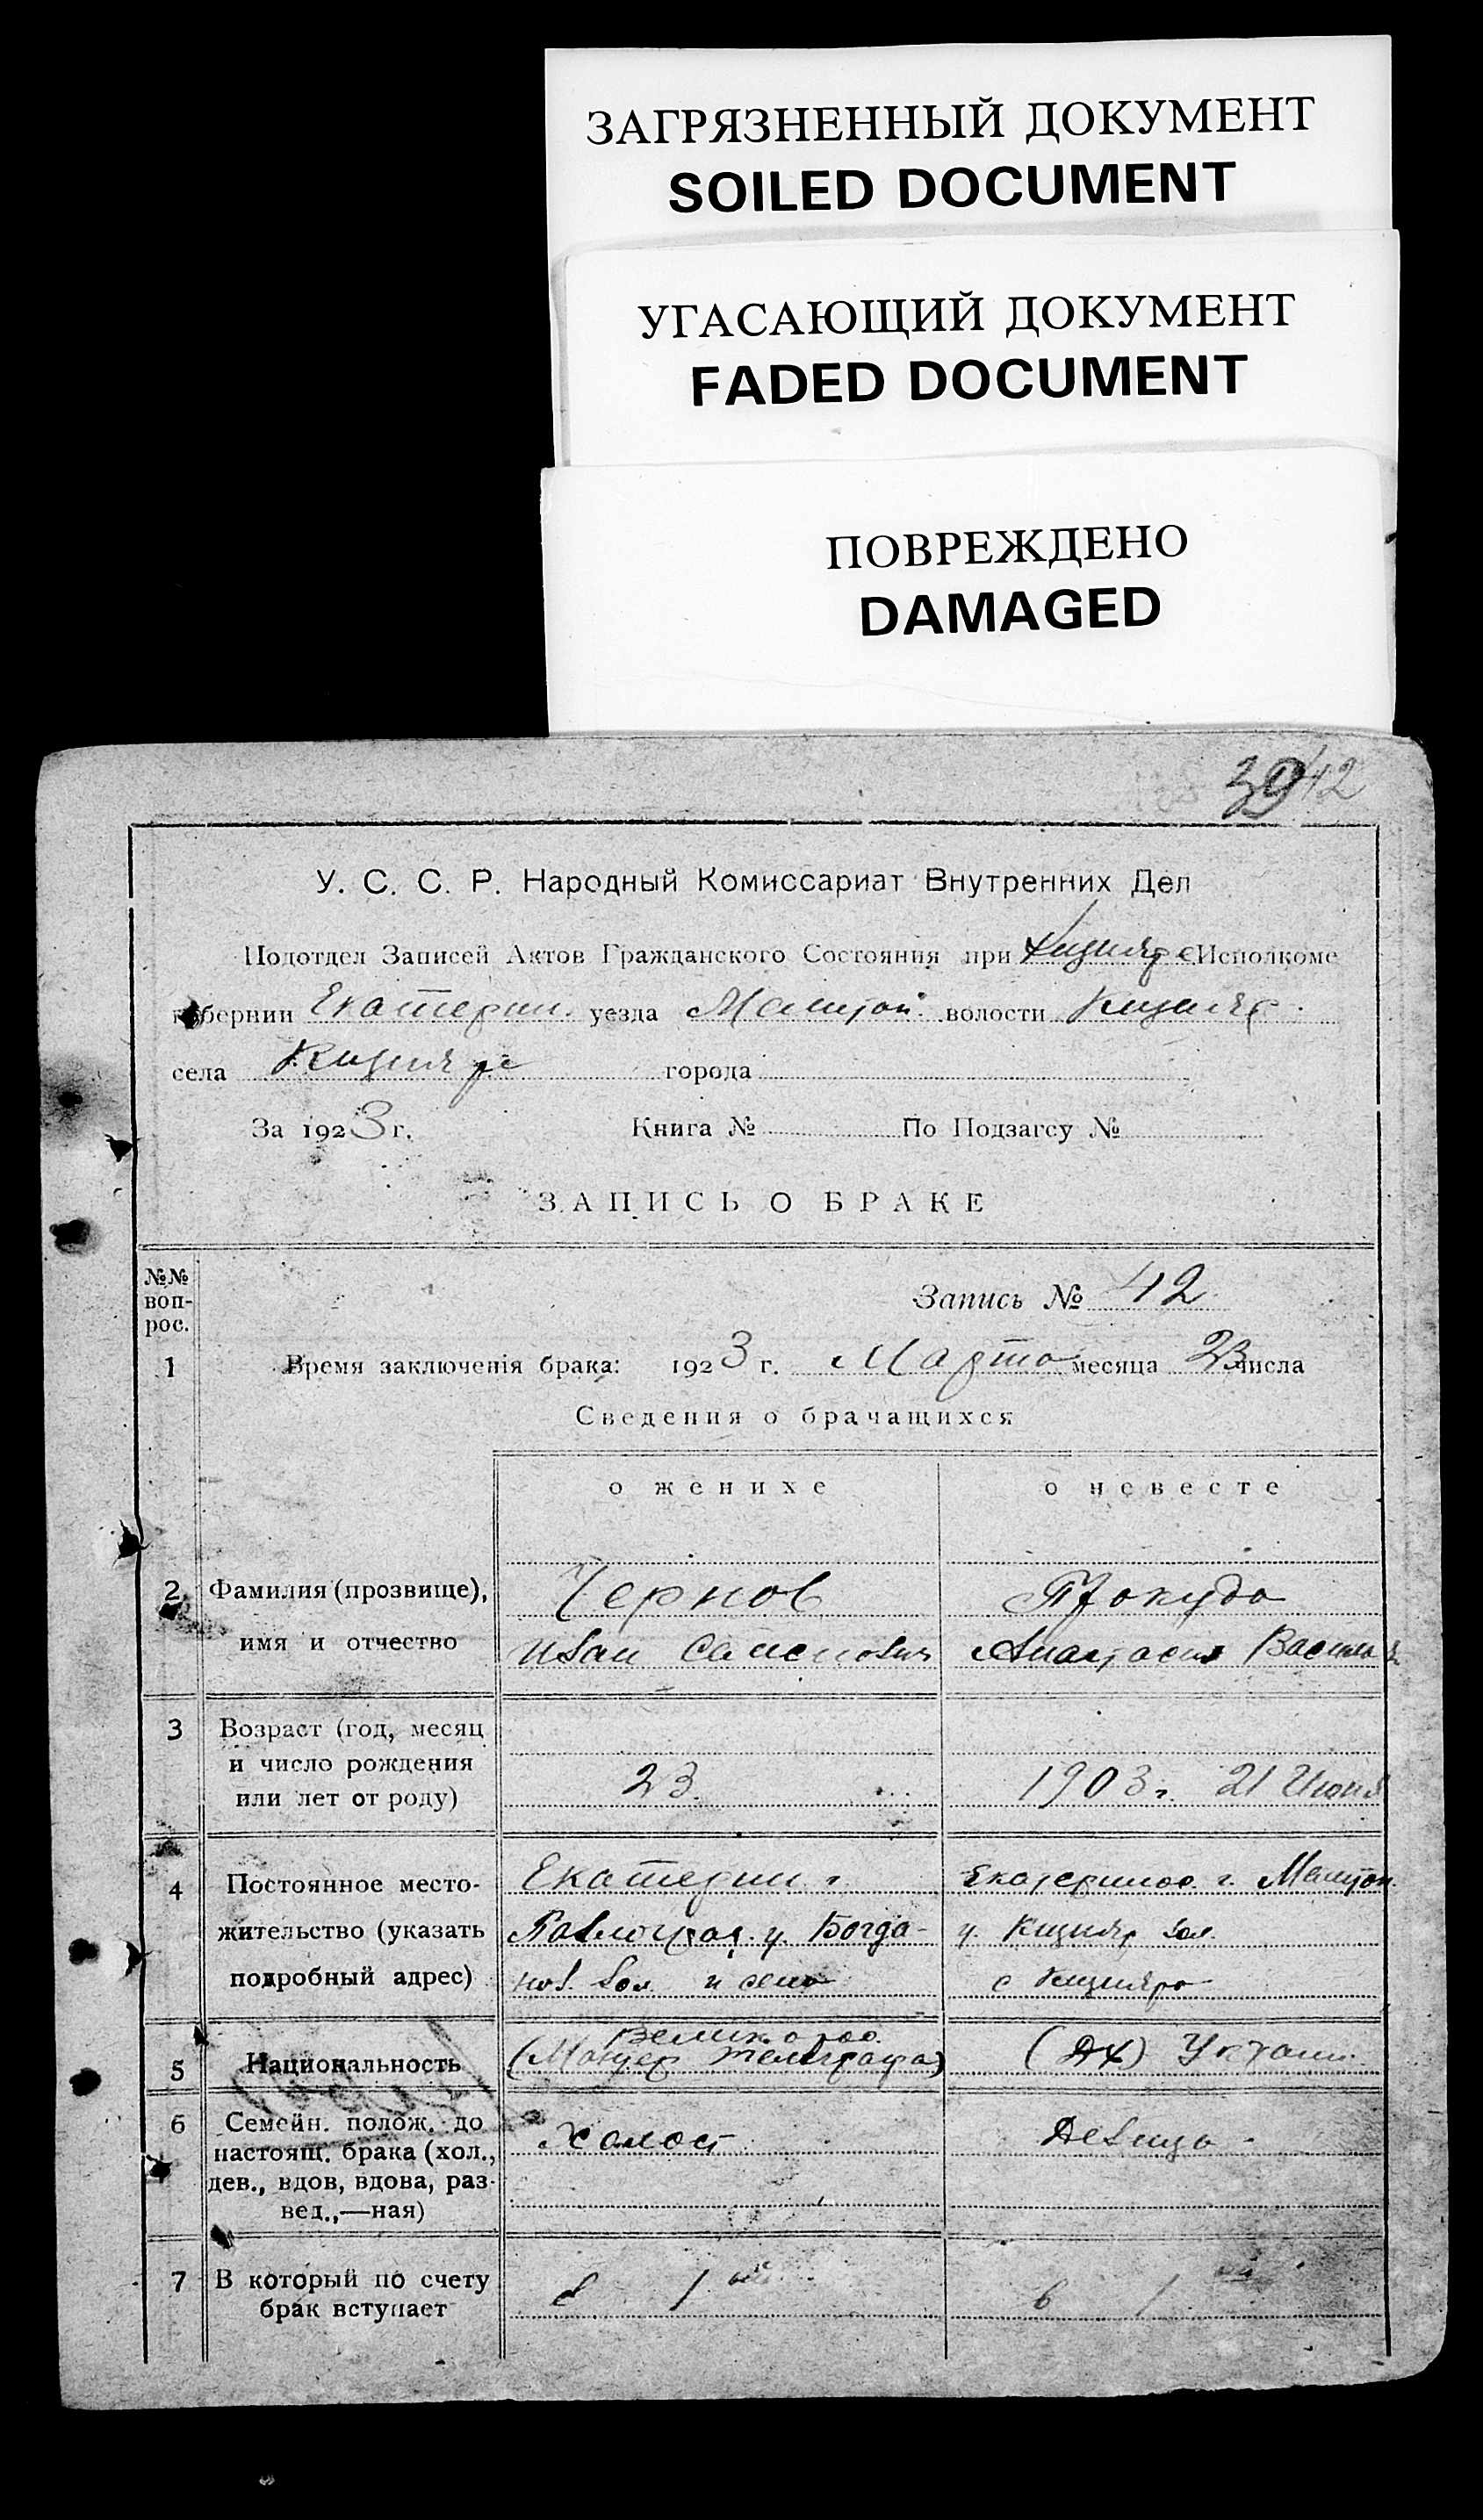 ЗАГРЯЗНЕННЫЙ ДОКУМЕНТ
SOILED DOCUMENT
УГАСАЮЩИЙ ДОКУМЕНТ
FADED DOCUMENT
ПОВРЕЖДЕНО
DAMAGED
39 42
У. С. С. Р. Народный Комиссариат Внутренних Дел
Подотдел Записей Актов Гражданского Состояния при Кизияр. Исполкоме
губернии Екатерин. уезда Мелитоп. волости Кизияр.
села Кизияре города
За 1923 г. Книга № По Подзагсу №
ЗАПИСЬ О БРАКЕ
№№
воп-
рос.
Запись № 42
1 Время заключенія брака: 1923 г. Марта месяца 23 числа
Сведения о брачащихся
о женихе о невесте
2 Фамилия (прозвище), Чернов
имя и отчество Иван Анастасия
3 Возраст (год, месяц
и число рождения
или лет от роду) 23. 1903 г. 21 Июня
4 Постоянное место- Екатерин. г. Екатеринос. г. Мелитоп.
жительство (указать Павлоград. у. Богда- у. Кизияр вол.
подробный адрес) нов. вол. и село с Кизияре
Великорос.
5 Национальность телеграфа) Украин.
6 Семейн. полож. до Холост Девица
настоящ. брака (хол.,
дев., вдов, вдова, раз-
вед.,—ная)
7 В который по счету в 1ый в 1
брак вступает